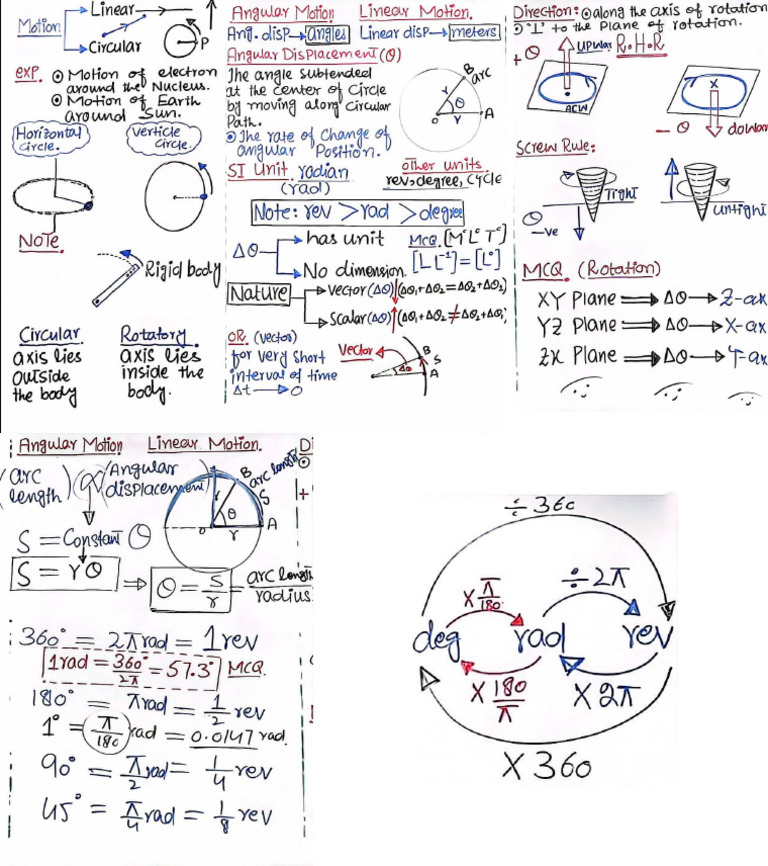 Motion
Linear
Circular
P
exp.
⊙ Motion of electron
around the Nucleus.
⊙ Motion of Earth
around Sun.
Horizontal
Circle.
Verticle
Circle.
NOTE.
Rigid body
Circular
axis lies
outside
the body
Rotatory.
axis lies
inside the
body.
Angular Motion Linear Motion.
Ang. disp → angles Linear disp → meters
Angular Displacement (θ)
The angle subtended
at the center of Circle
by moving along Circular
Path.
⊙ The rate of Change of
angular Position.
B
arc
r
θ
o
r
A
SI Unit radian
(rad)
other units
rev, degree, Cycle
Note: rev > rad > degree
Δθ
has unit
No dimension.
MCQ. [M°L°T°]
[L L⁻¹] = [L°]
Nature
Vector (Δθ)↓ (Δθ₁+Δθ₂=Δθ₂+Δθ₁)
Scalar (Δθ)↑ (Δθ₁+Δθ₂≠Δθ₂+Δθ₁)
OR. (vector)
for very short
interval of time
Δt → 0
Vector
B
S
Δθ
A
Direction: ⊙ along the axis of rotation
⊙ "⊥" to the Plane of rotation.
+ θ
upwar
R.H.R
ACW
X
- θ
dowar
Screw Rule:
Tight
θ
-ve
untight
MCQ (Rotation)
XY Plane ⟹ Δθ → Z-ax
YZ Plane ⟹ Δθ → X-ax
ZX Plane ⟹ Δθ → Y-ax
Angular Motion Linear Motion. Di
(arc
length) ∝ (Angular
displacement)
B
arc length
S
r
θ
o
r
A
+
S = Constant θ
S = rθ ⟹ θ = S/r = arc length/radius
360° = 2π rad = 1 rev
1 rad = 360°/2π = 57.3° MCQ
180° = π rad = 1/2 rev
1° = π/180 rad = 0.0147 rad.
90° = π/2 rad = 1/4 rev
45° = π/4 rad = 1/8 rev
÷ 360
X π/180
÷ 2π
deg rad rev
X 180/π
X 2π
X 360